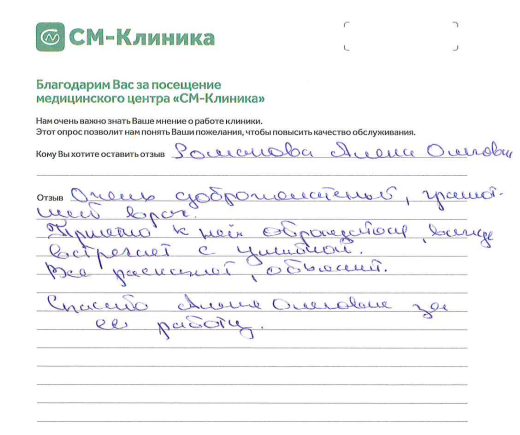 СМ-Клиника
Благодарим Вас за посещение
медицинского центра «СМ-Клиника»
Нам очень важно знать Ваше мнение о работе клиники.
Этот опрос позволит нам понять Ваши пожелания, чтобы повысить качество обслуживания.
Кому Вы хотите оставить отзыв Романова Алена Олеговна
Отзыв Очень доброжелательный, грамот-
ный врач.
Приятно к ней обращаться, всегда
встречает с улыбкой.
Все расскажет, объяснит.
Спасибо Алене Олеговне за
ее работу.